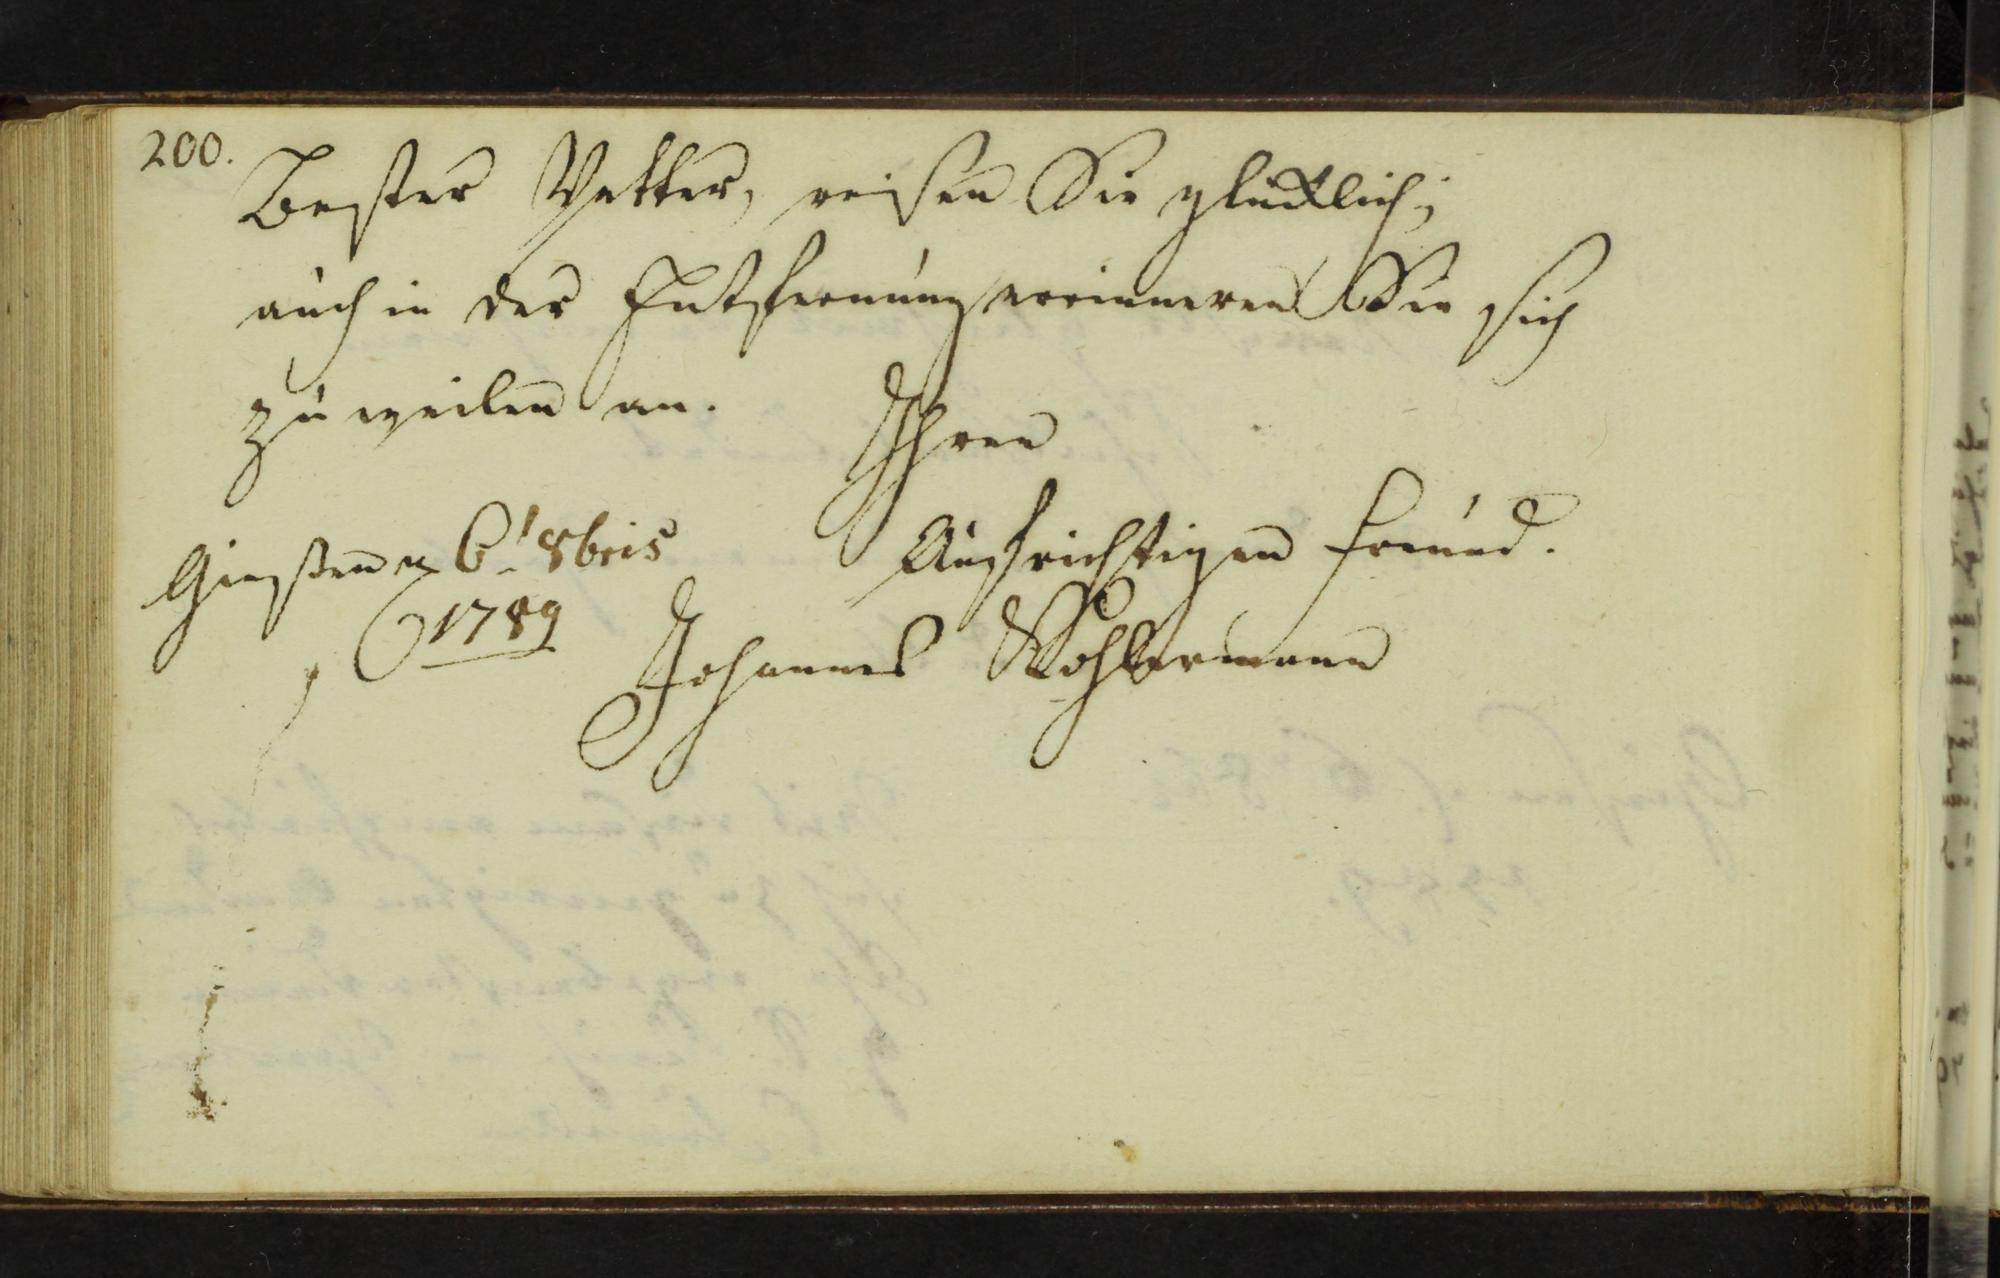 200.
Bester Vetter, reisen Sie glücklich;
auch in der Entfernung errinneren Sie sich
zuweilen an.
Ihren
Giessen 6' 8bris
Aufrichtigen Freund.
1789
Johannes